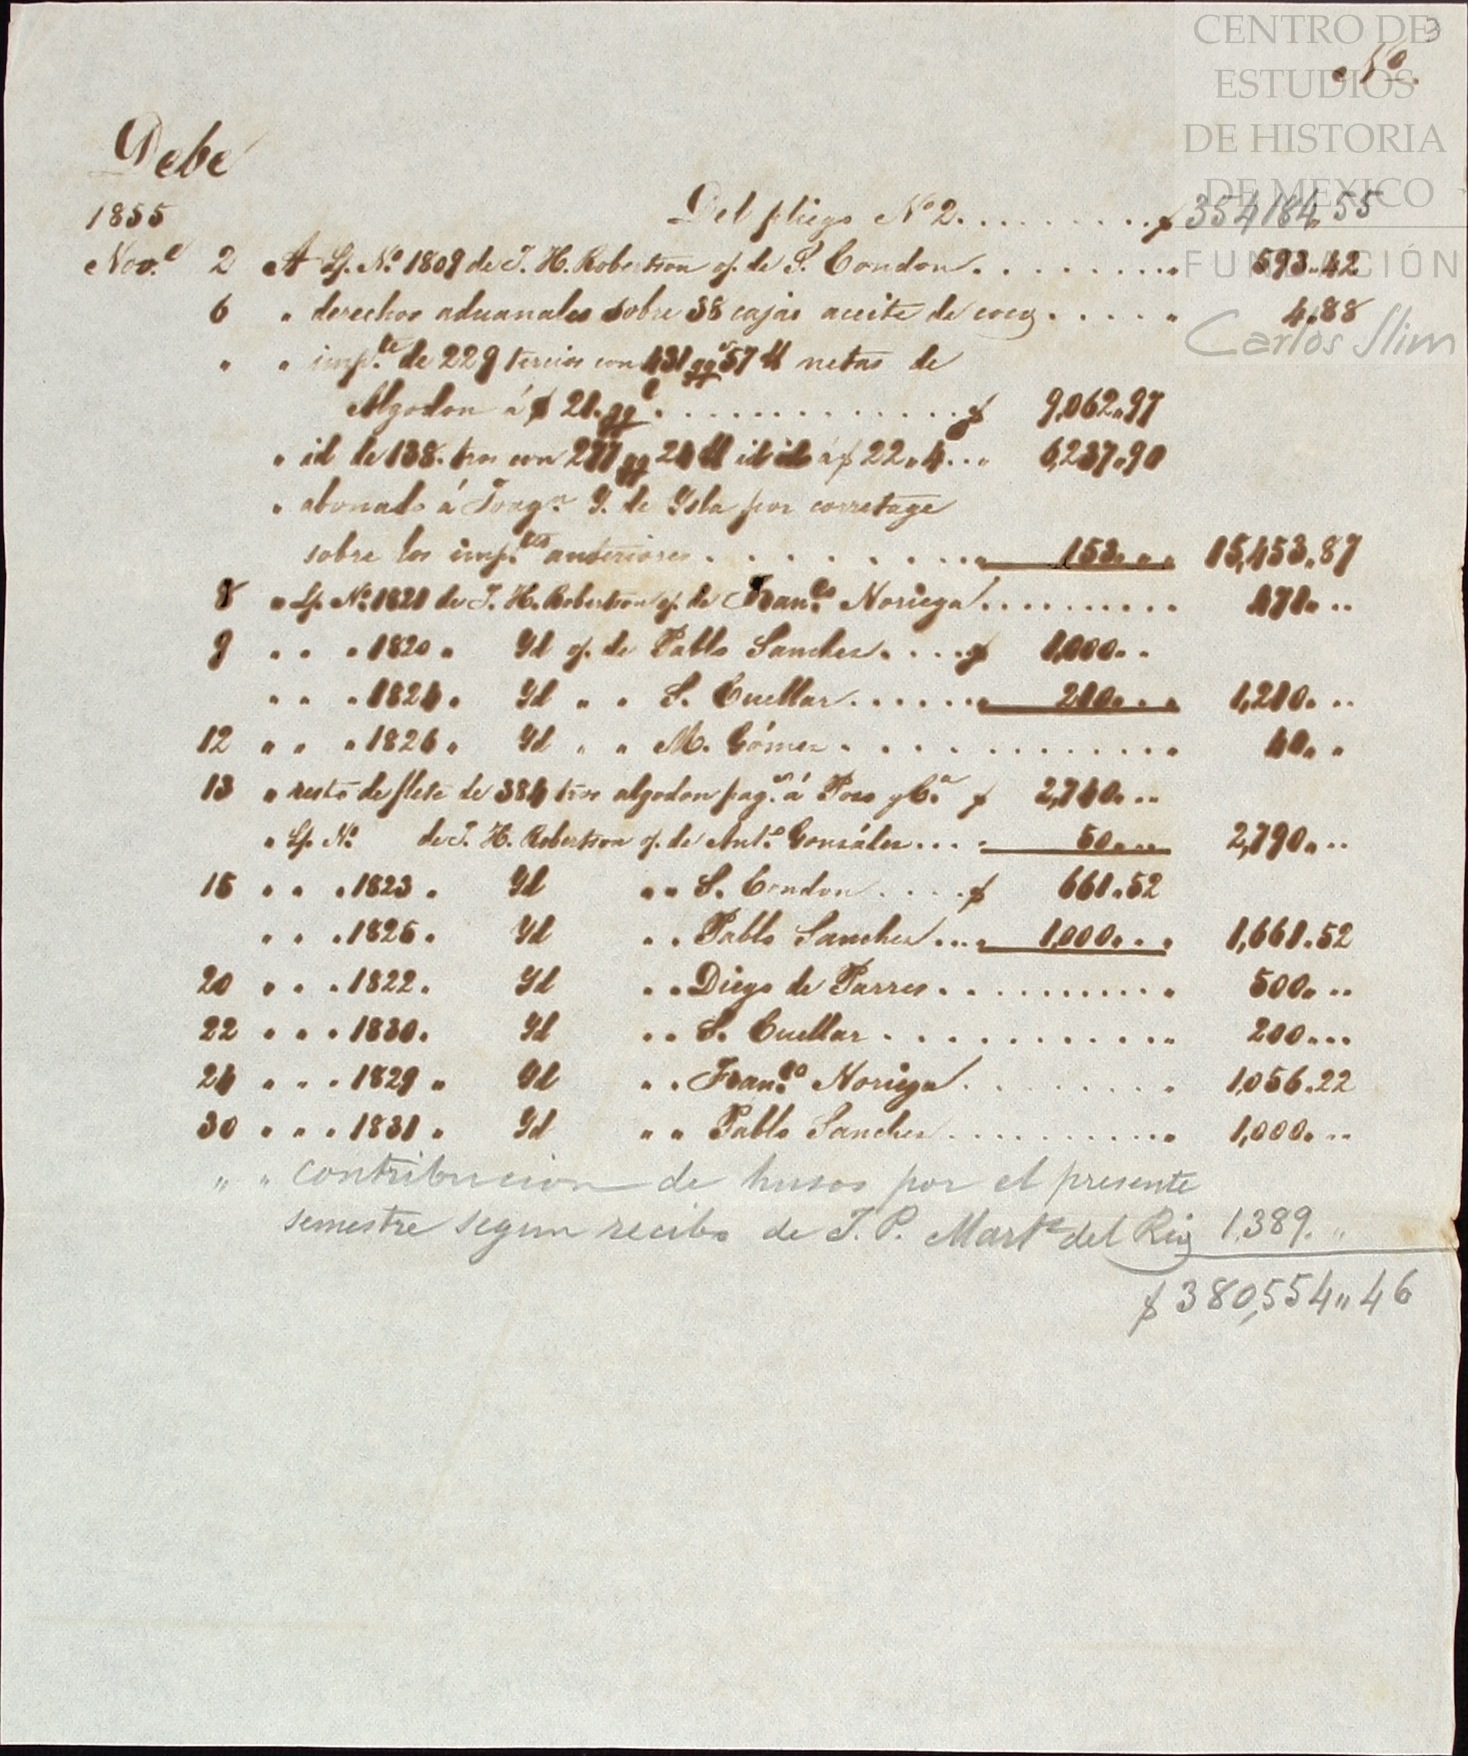 CENTRO DE
ESTUDIOS
DE HISTORIA
DE MEXICO
FUNDACIÓN
Carlos Slim
Nº. 3
Debe
1855 Del pliego Nº 2. . . . . . . . . $ 354184,,55
Nov.e 2 A Lp. Nº. 1809 de J. H. Robertson of. de S. Condon . . . . . . . . „ 593„42
6 „ derechos aduanales sobre 38 cajas aceite de coco . . . . . „ 4.88
„ „ imp.te de 229 tercios con 431 qq.s 57 lb netas de
Algodon á $ 21. qql. . . . . . . . . . . . . . . $ 9,062„97
„ id de 138. tros con 277 qq 24 lb id id á $ 22„4 . . „ 6,237„90
„ abonado á Joaqn. Y. de Ysla por corretage
sobre los imp.tes anteriores . . . . . . . . . „ 153„ „ „ 15,453„87
8 „ Lp. Nº. 1821 de J. H. Robertson of. de Fran.co Noriega . . . . . . . . . „ 471„ ..
9 „ „ „ 1820 „ Yd of. de Pablo Sanches . . . . $ 1,000„ „
„ „ „ 1824 „ Yd „ „ S. Cuellar . . . . . . „ 210„ „ „ 1,210„ ..
12 „ „ „ 1826 „ Yd „ „ M. Gómez . . . . . . . . . . . . „ 40„ „
13 „ resto de flete de 384 tros algodon pag.o á Poso y Ca. $ 2,740„ ..
„ Lp. Nº. de J. H. Robertson of. de Ant.o Gonzáles . . . „ 50„ „ 2,790„ ..
15 „ „ „ 1823 „ Yd „ „ S. Condon . . . . $ 661„52
„ „ „ 1825 „ Yd „ „ Pablo Sanches . . . „ 1,000„ „ „ 1,661„52
20 „ „ „ 1822 „ Yd „ „ Diego de Parres . . . . . . . . . . . „ 500„ ..
22 „ „ „ 1830 „ Yd „ „ S. Cuellar . . . . . . . . . . . . „ 200„ ..
24 „ „ „ 1829 „ Yd „ „ Fran.co Noriega . . . . . . . . „ 1,056„22
30 „ „ „ 1831 „ Yd „ „ Pablo Sanches . . . . . . . . . . . „ 1,000„ ..
„ „ contribucion de husos por el presente
semestre segun recibo de J. P. Martz del Rio 1,389. „
$ 380,554„46